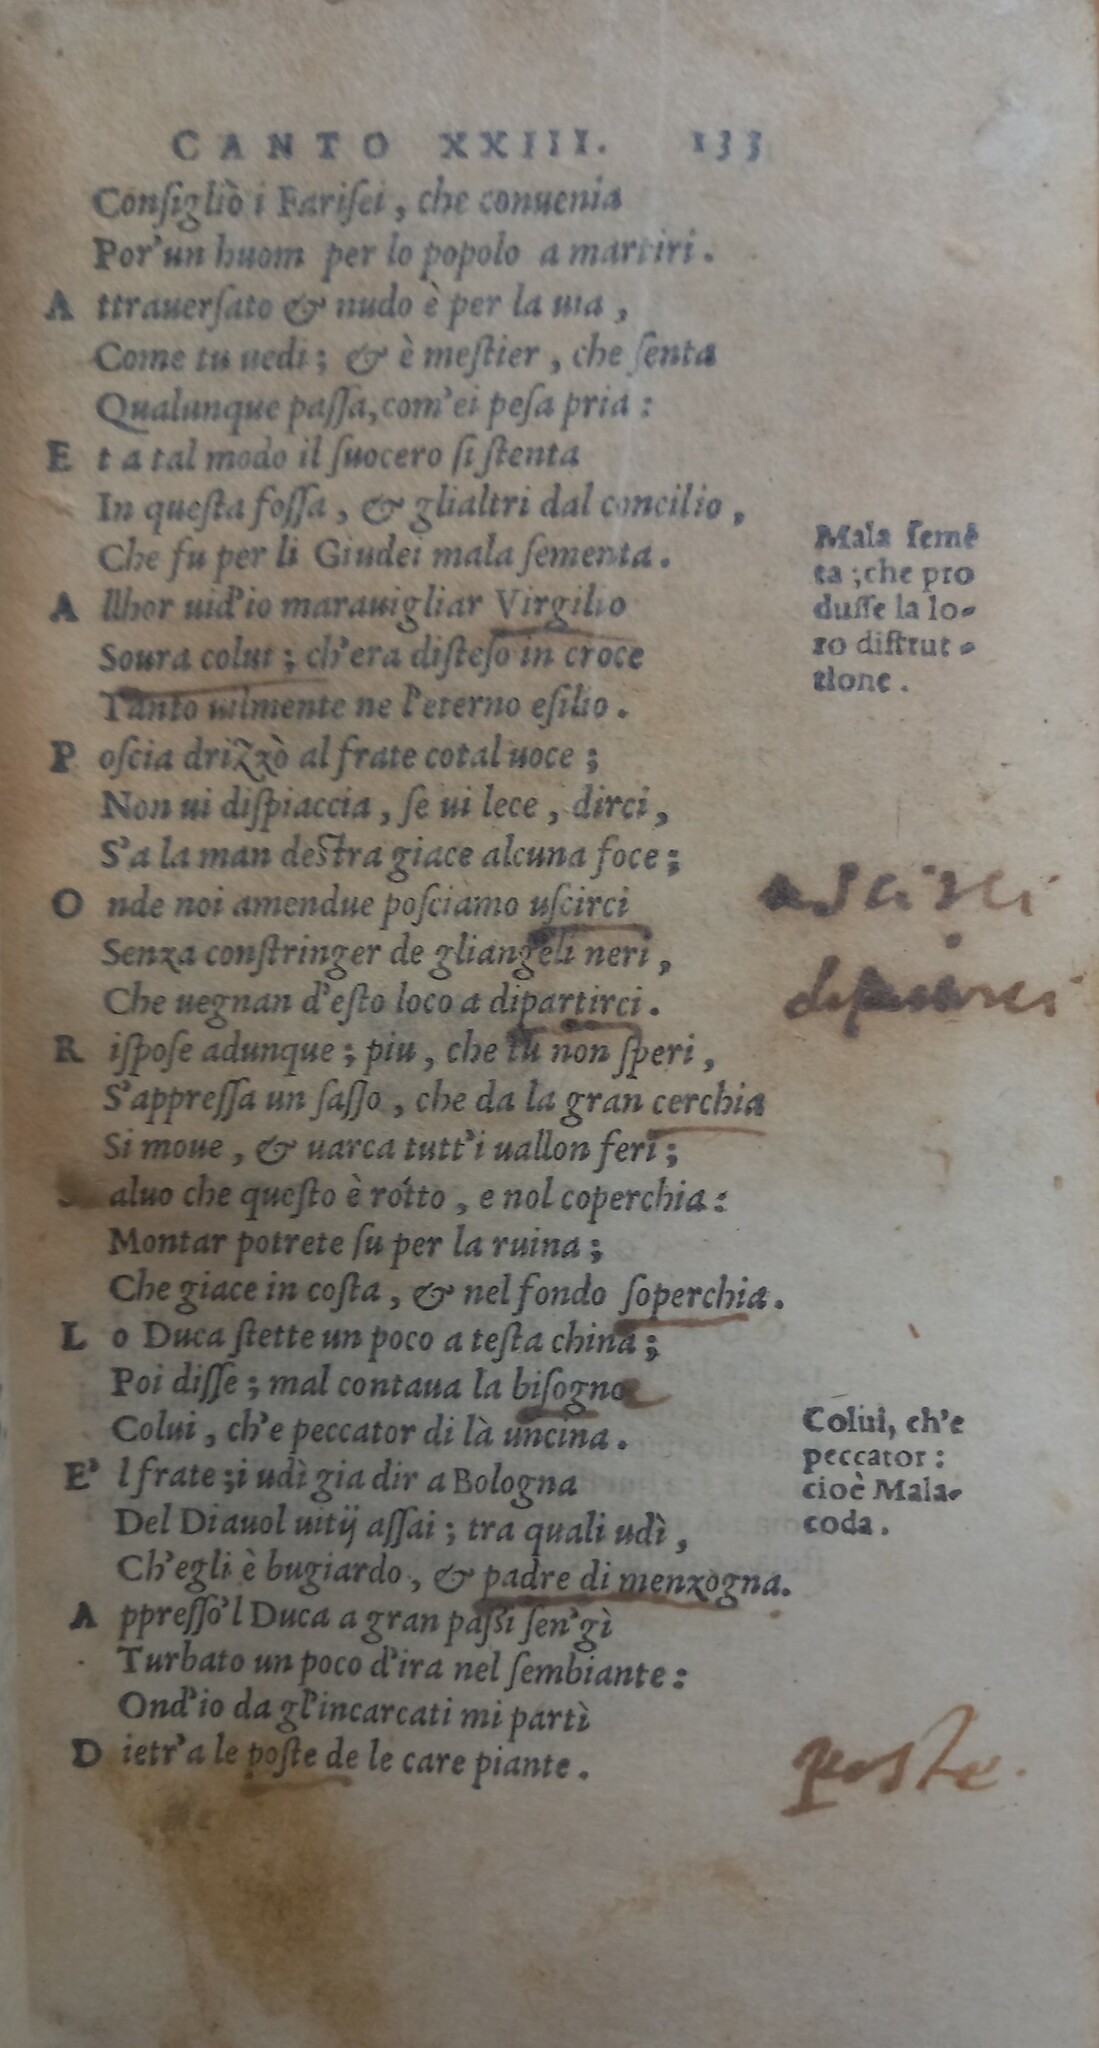 CANTO XXIII. 133
Conſigliò i Fariſei, che conuenia
Por'un huom per lo popolo a martiri.
A ttrauerſato & nudo è per la uia,
Come tu uedi; & è meſtier, che ſenta
Qualunque paſſa, com'ei peſa pria:
E t a tal modo il ſuocero ſi ſtenta
In queſta foſſa, & glialtri dal concilio,
Che fu per li Giudei mala ſementa.
A llhor uid'io marauigliar Virgilio
Soura colui; ch'era diſteſo in croce
Tanto uilmente ne l'eterno eſilio.
P oſcia drizzò al frate cotal uoce;
Non ui diſpiaccia, ſe ui lece, dirci,
S'a la man deſtra giace alcuna foce;
O nde noi amendue poſciamo uſcirci
Senza conſtringer de gliangeli neri,
Che uegnan d'eſto loco a dipartirci.
R iſpoſe adunque; piu, che tu non ſperi,
S'appreſſa un ſaſſo, che da la gran cerchia
Si moue, & uarca tutt'i uallon feri;
S aluo che queſto è rotto, e nol coperchia:
Montar potrete ſu per la ruina;
Che giace in coſta, & nel fondo ſoperchia.
L o Duca ſtette un poco a teſta china;
Poi diſſe; mal contaua la biſogna
Colui, ch'e peccator di là uncina.
E' l frate; i udì gia dir a Bologna
Del Diauol uitij aſſai; tra quali udì,
Ch'egli è bugiardo, & padre di menzogna.
A ppreſſo'l Duca a gran paſſi ſen'gì
Turbato un poco d'ira nel ſembiante:
Ond'io da gl'incarcati mi partì
D ietr'a le poſte de le care piante.
Mala ſemē
ta; che pro
duſſe la lo-
ro diſtrut-
tione.
uscirci
Colui, ch'e
peccator:
cioè Mala-
coda.
poste.